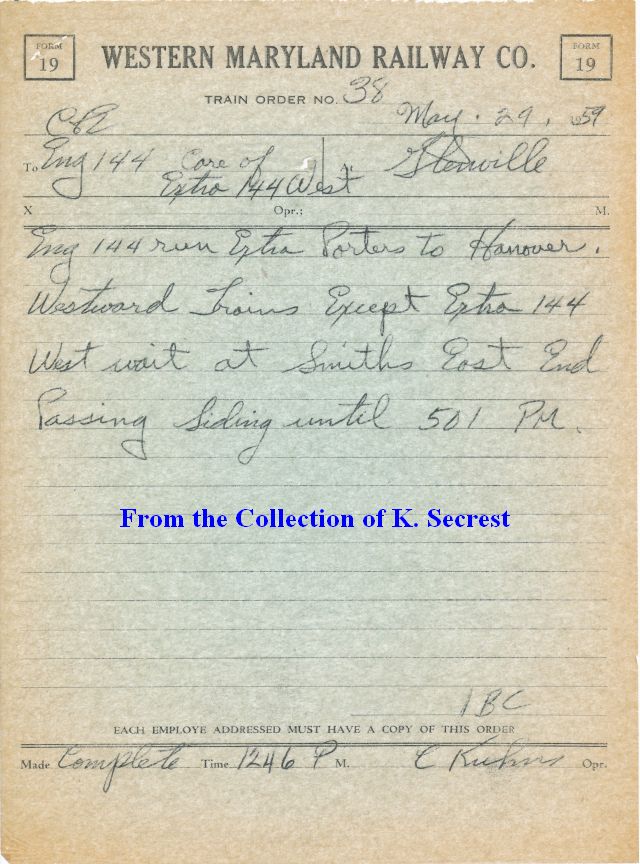 FORM 19 WESTERN MARYLAND RAILWAY CO. FORM 19
TRAIN ORDER NO. 38
C&E May. 29, 1959
To Eng 144 Care of At Glenville
Extra 144 West
X Opr.; M.
Eng 144 run Extra Porters to Hanover.
Westward Trains Except Extra 144
West wait at Smiths East End
Passing Siding until 501 PM.
From the Collection of K. Secrest
EACH EMPLOYE ADDRESSED MUST HAVE A COPY OF THIS ORDER
Made Complete Time 1246 P M. C Kuhns Opr.